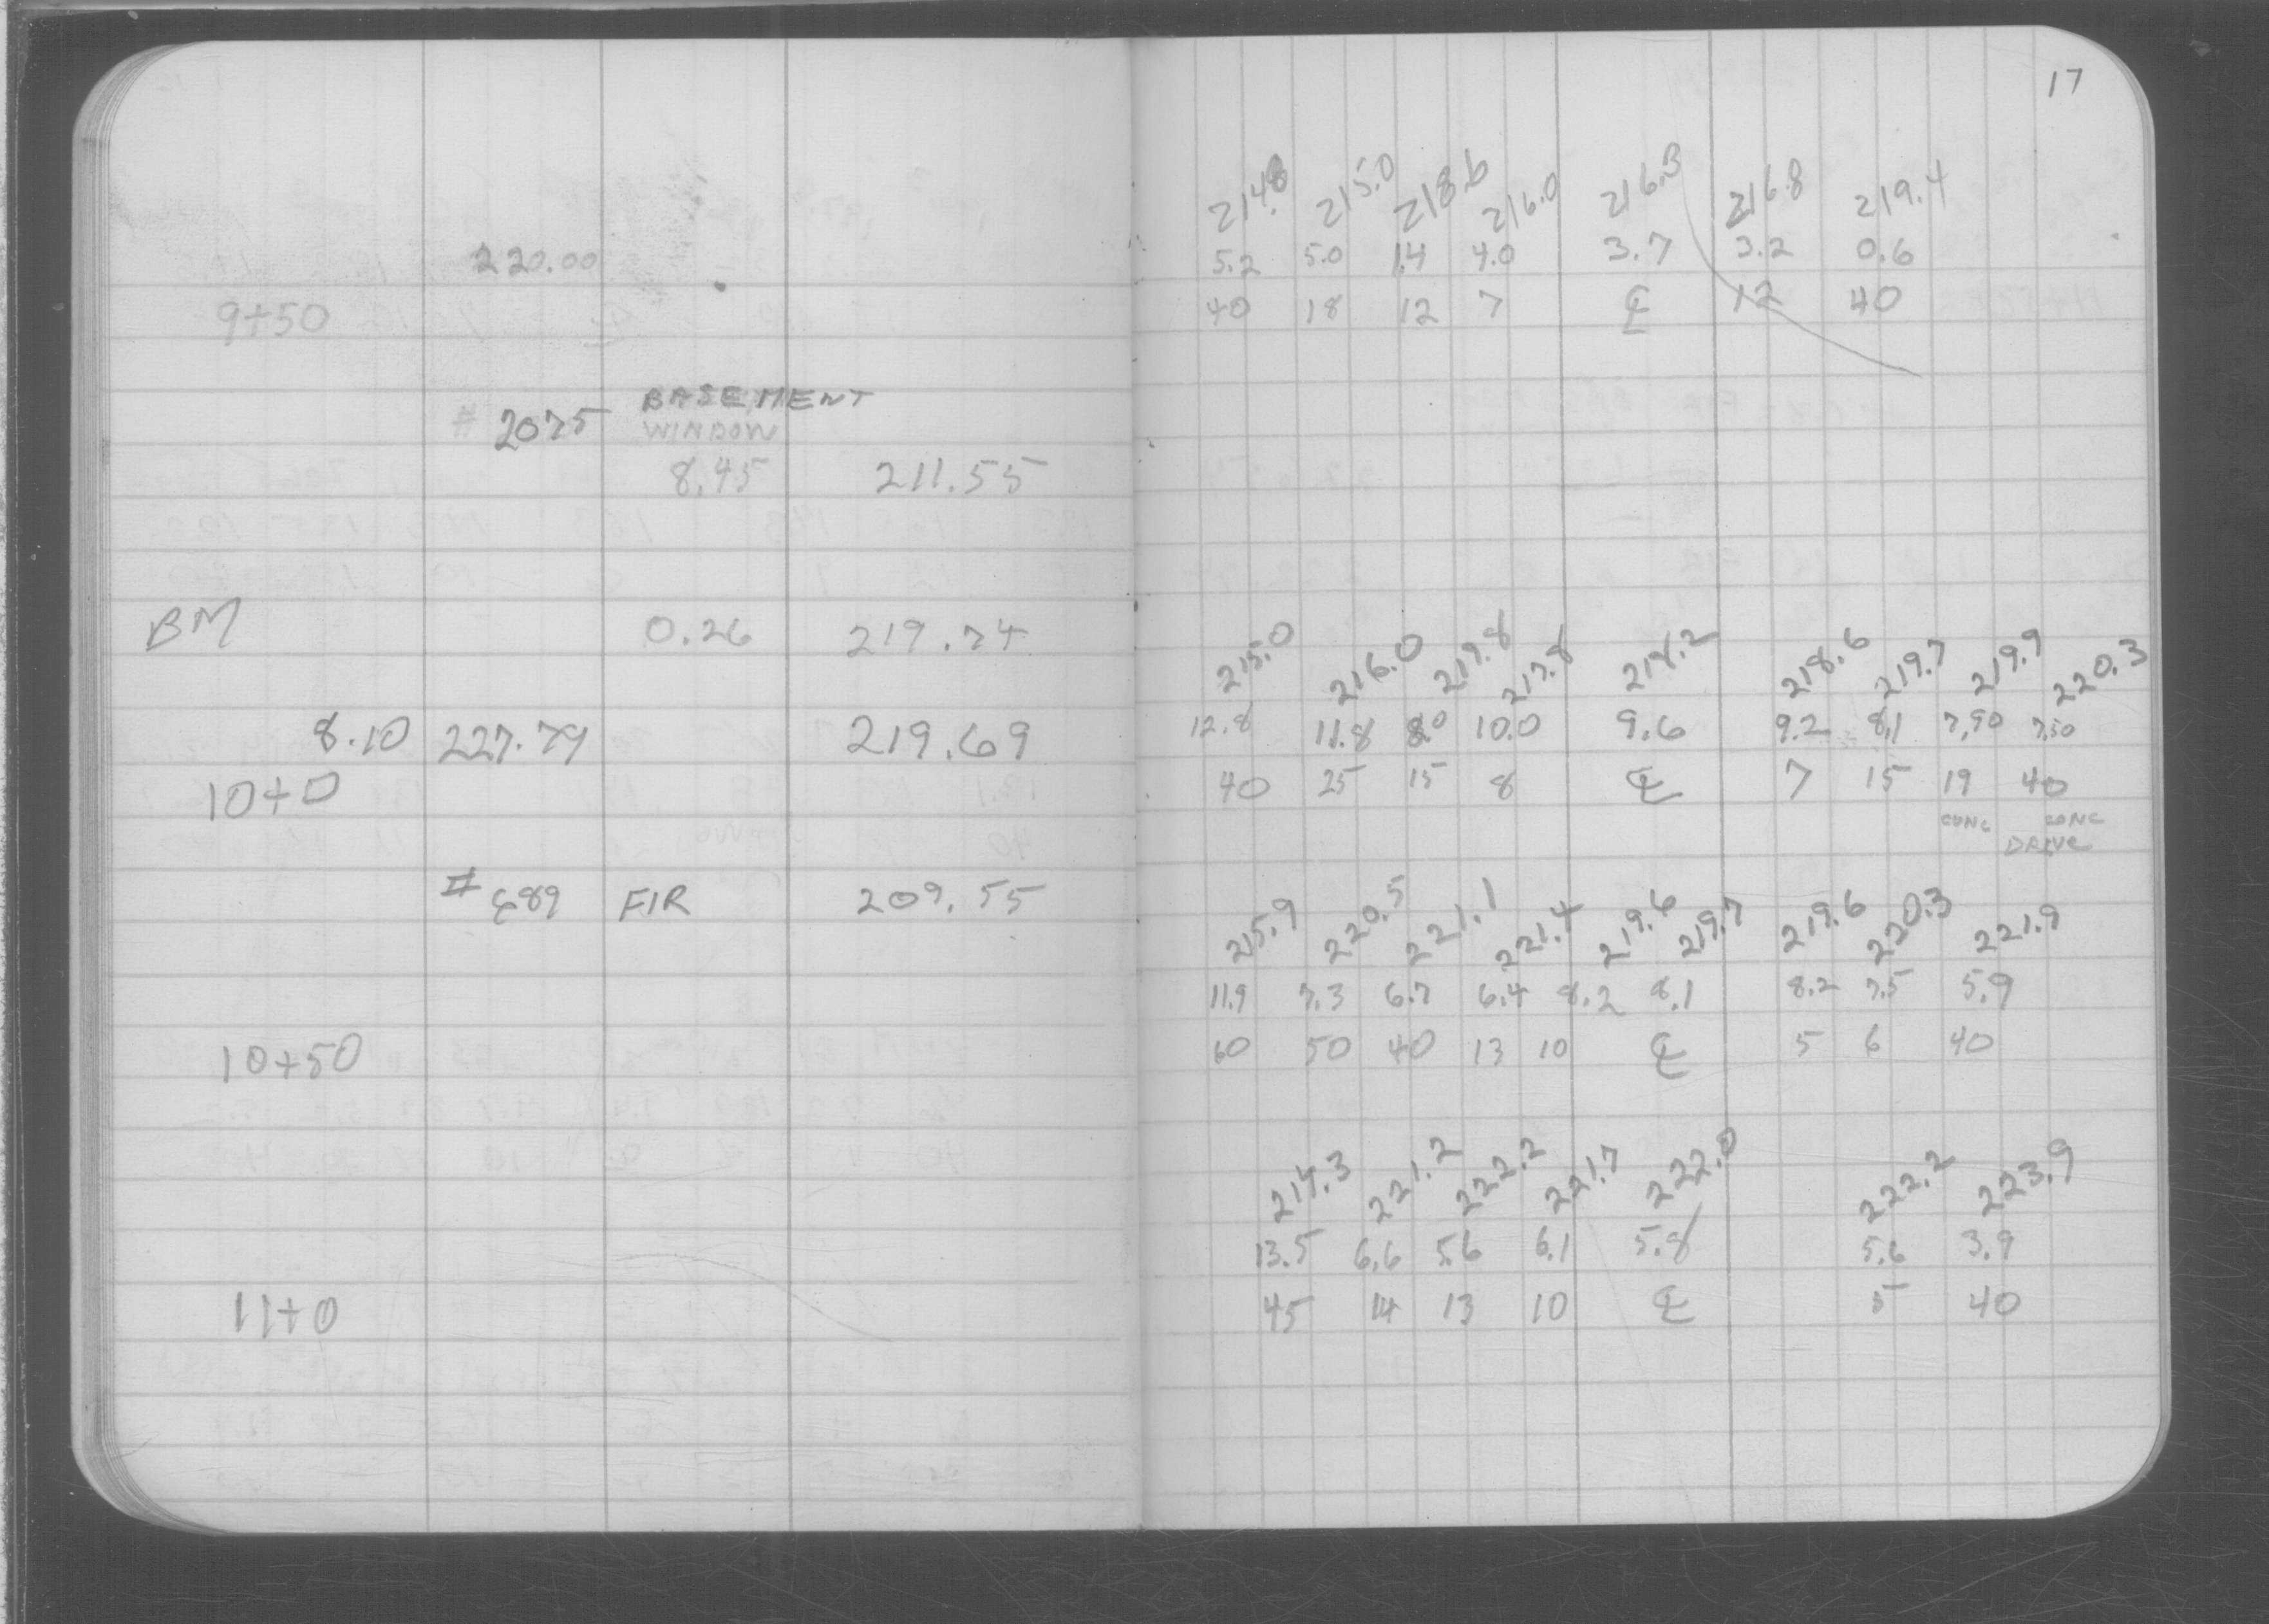 17
214.8 215.0 218.6 216.0 216.3 216.8 219.4
220.00 5.2 5.0 1.4 4.0 3.7 3.2 0.6
9+50 40 18 12 7 ℄ 12 40
BASEMENT
# 2075 WINDOW
8.45 211.55
BM 0.26 219.74
215.0 216.0 219.8 217.8 218.2 218.6 219.7 219.9 220.3
8.10 227.79 219.69 12.8 11.8 8.0 10.0 9.6 9.2 8.1 7.90 7.50
10+0 40 25 15 8 ℄ 7 15 19 40
CONC CONC
DRIVE
# FIR 209.55
215.9 220.5 221.1 221.4 219.6 219.7 219.6 220.3 221.9
11.9 7.3 6.7 6.4 8.2 8.1 8.2 7.5 5.9
10+50 60 50 40 13 10 ℄ 5 6 40
214.3 221.2 222.2 221.7 222.0 222.2 223.9
13.5 6.6 5.6 6.1 5.8 5.6 3.9
11+0 45 14 13 10 ℄ 5 40